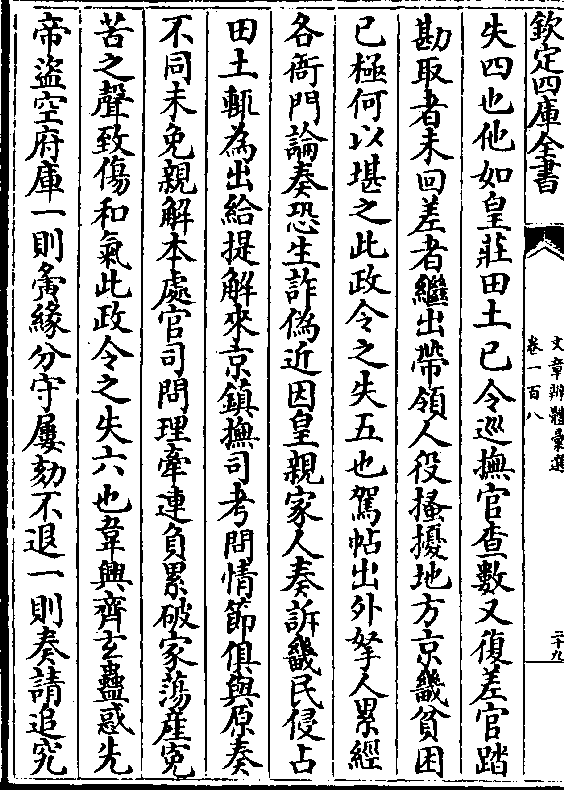 欽定四庫全書
文章辨體彙選
卷一百八
二十九
失四也他如皇莊田土已令巡撫官查數又復差官踏
勘取者未回差者繼出帶領人役搔擾地方京畿貧困
已極何以堪之此政令之失五也駕帖出外拏人累經
各衙門論奏恐生詐偽近因皇親家人奏訴畿民侵占
田土輒為出給提解來京鎮撫司考問情節俱與原奏
不同未免親解本處官司問理牽連負累破家蕩産寃
苦之聲致傷和氣此政令之失六也韋興齊玄蠱惑先
帝盜空府庫一則夤緣分守屢劾不退一則奏請追究